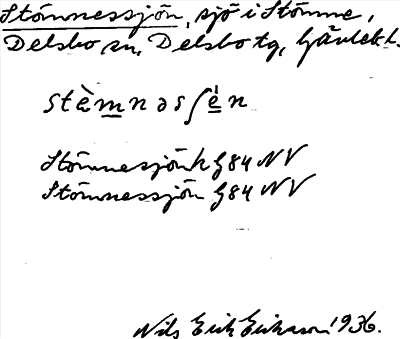 Stömnessjön, sjö i Stömne,
Delsbo sn, Delsbo tg, Gävlebl.
stè̀m̲nəsʃé̲n
Stömnesjön h G84 NV
Stömnessjön G84 NV
Nils Erik Eriksson 1936.